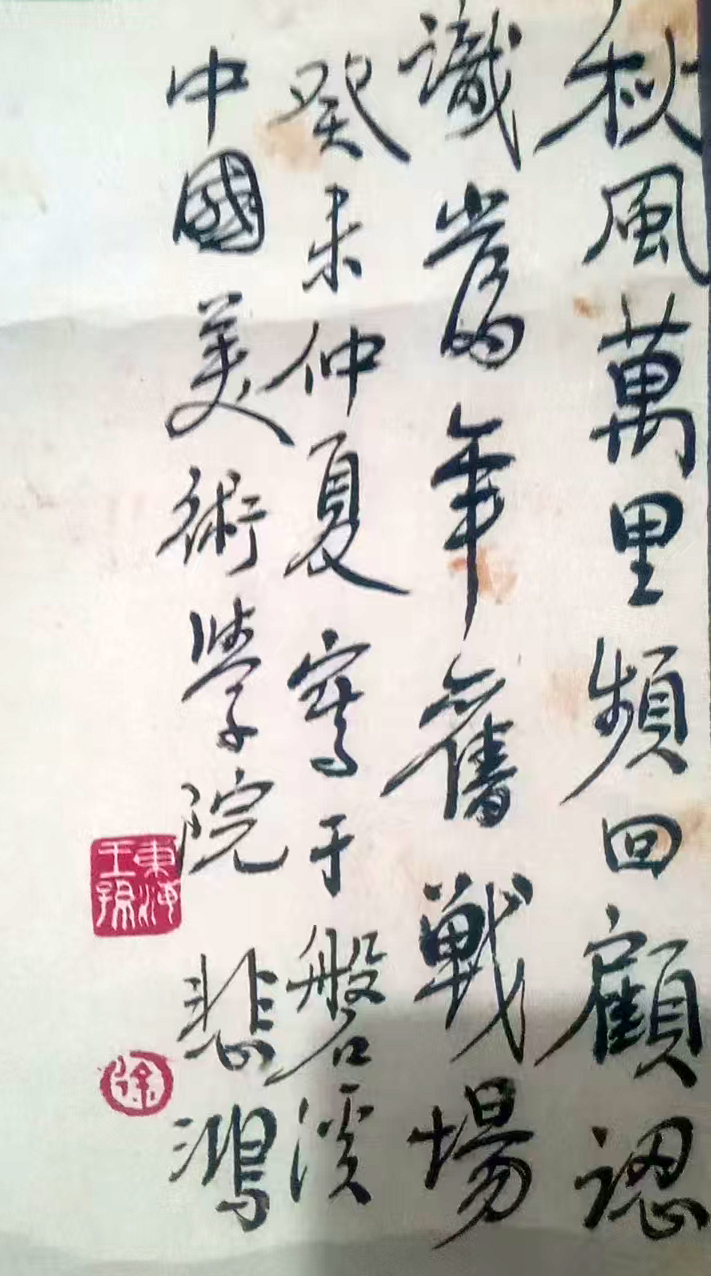 秋風萬里頻回顧認
識當年舊戰場
癸未仲夏寫于磐溪
中國美術學院 悲鴻
東海王孫
徐